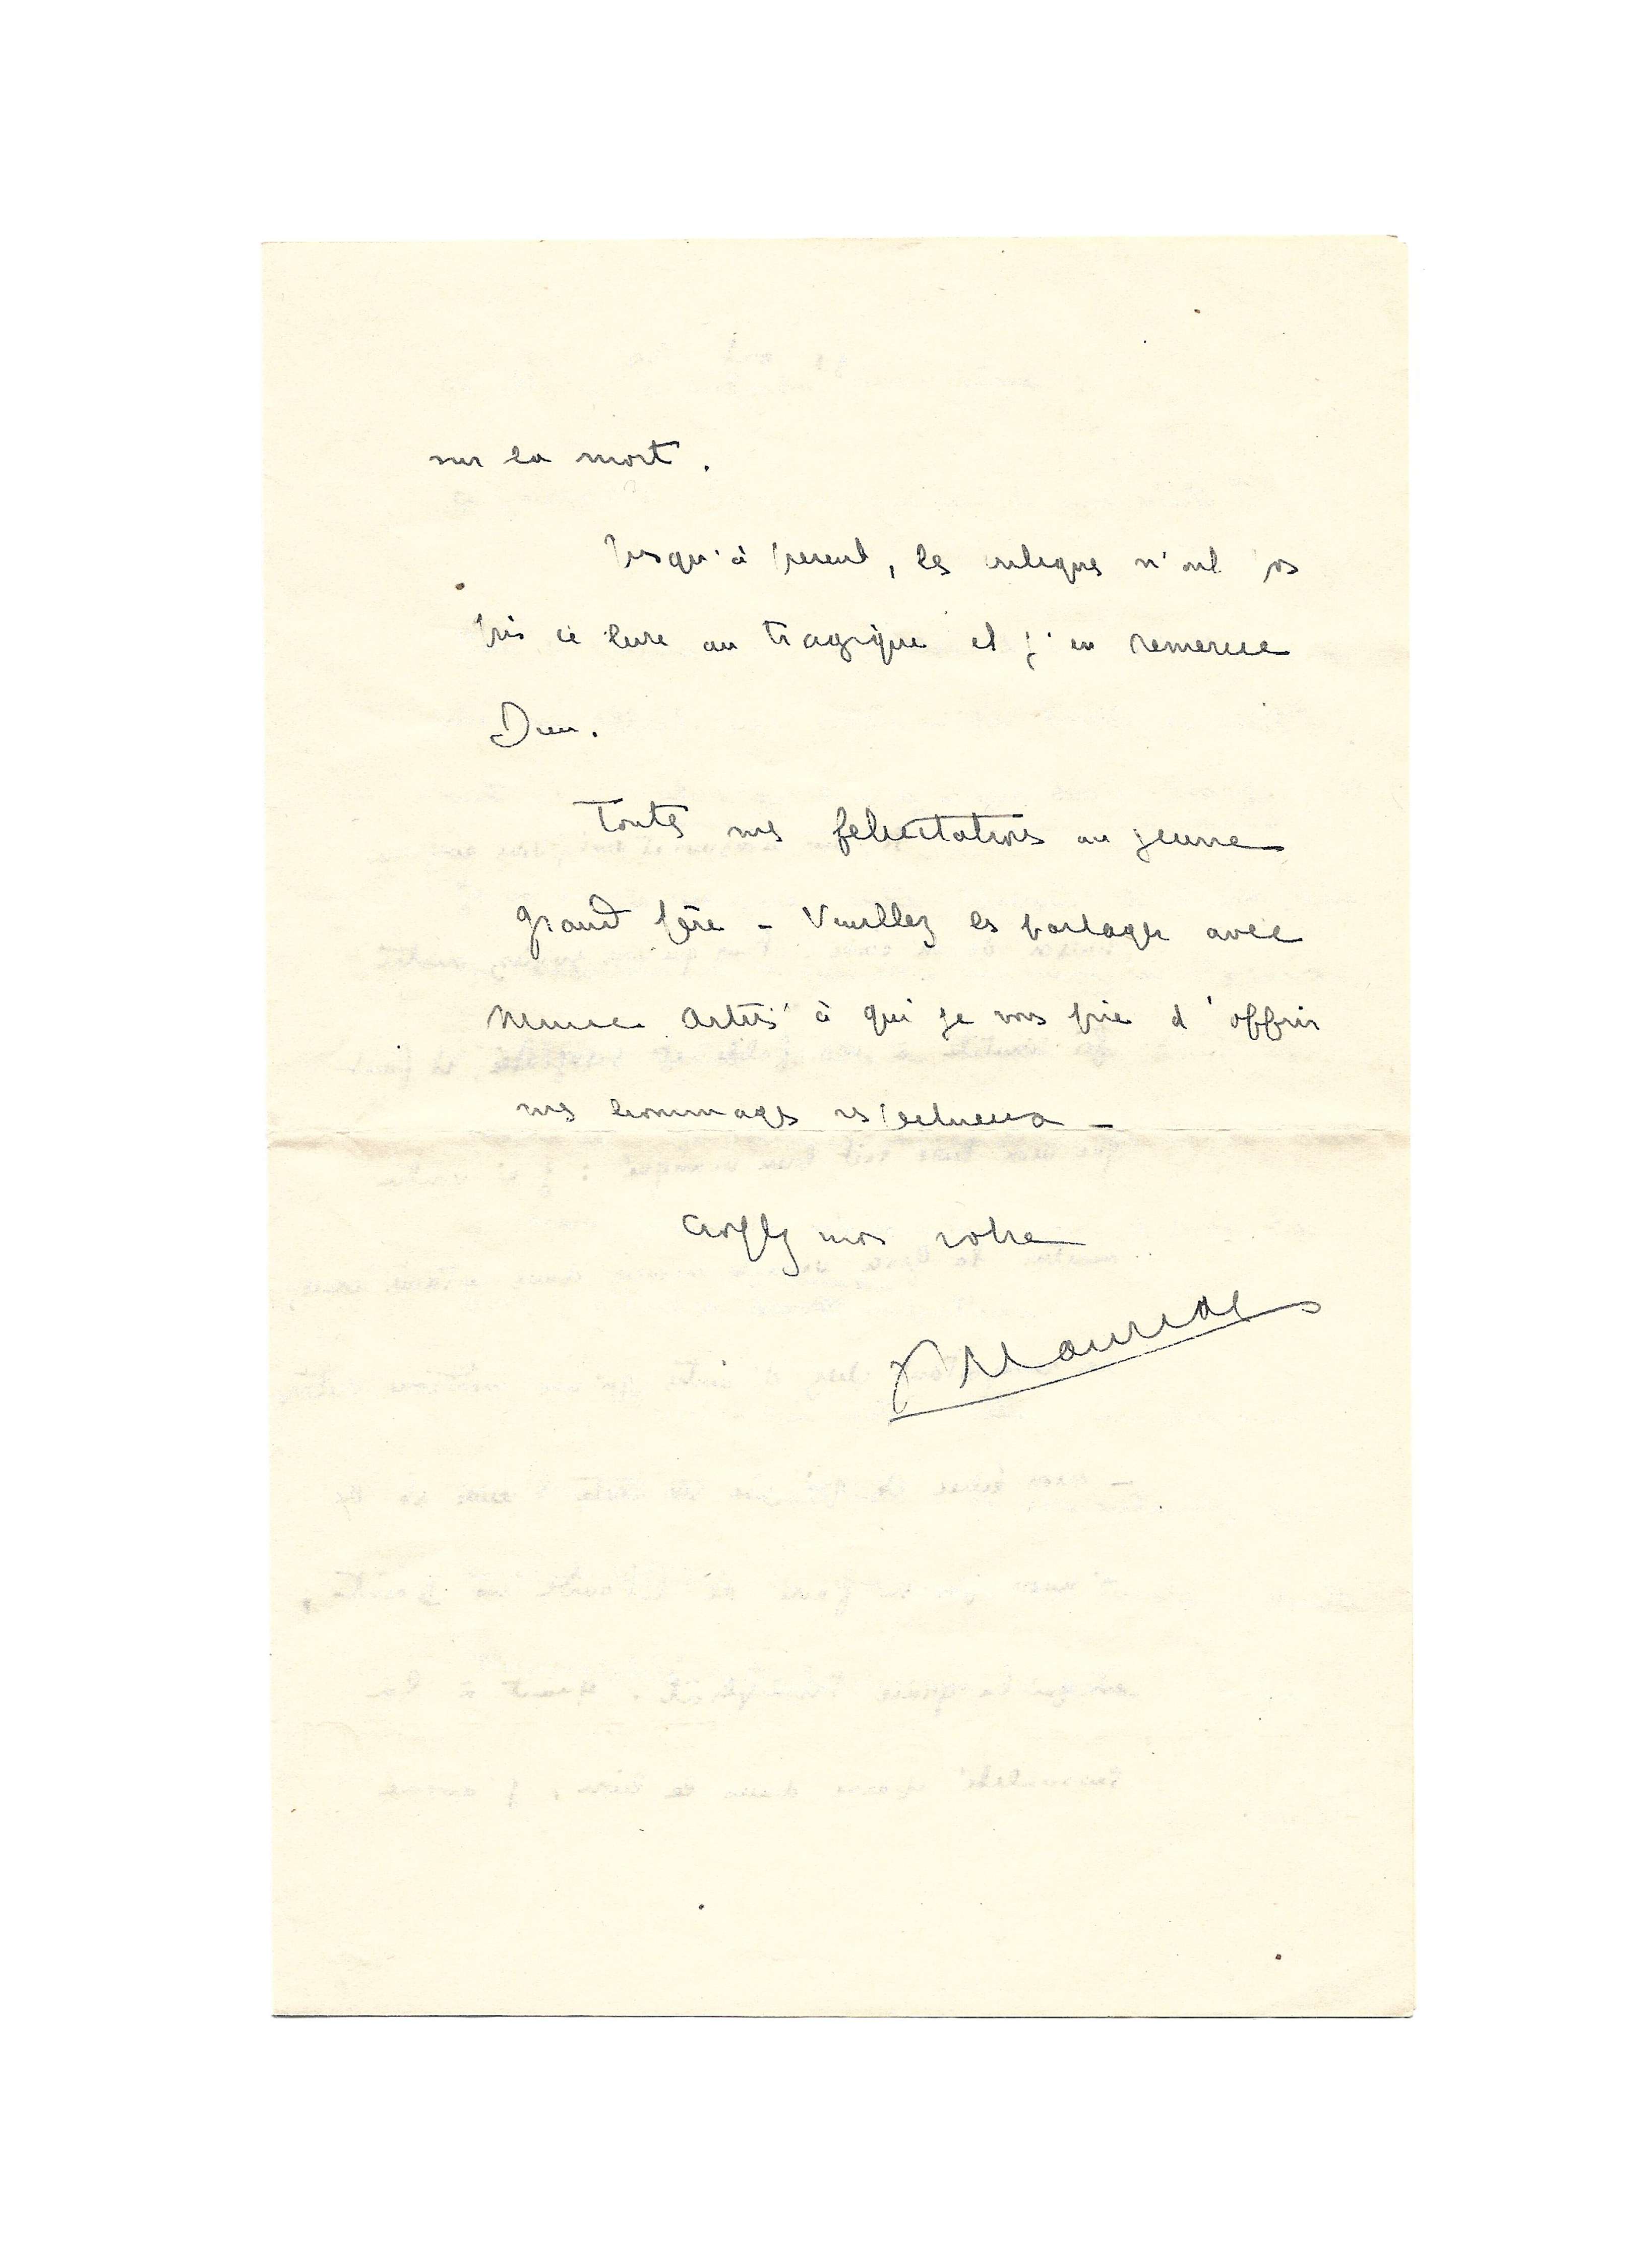 sur la mort.
Jusqu'à présent, les critiques n'ont pas
pris ce livre au tragique et j'en remercie
Dieu.
Toutes mes félicitations au jeune
grand père - Veuillez les partager avec
Artus à qui je vous prie d'offrir
mes hommages respectueux -
Croyez moi votre
F Mauriac